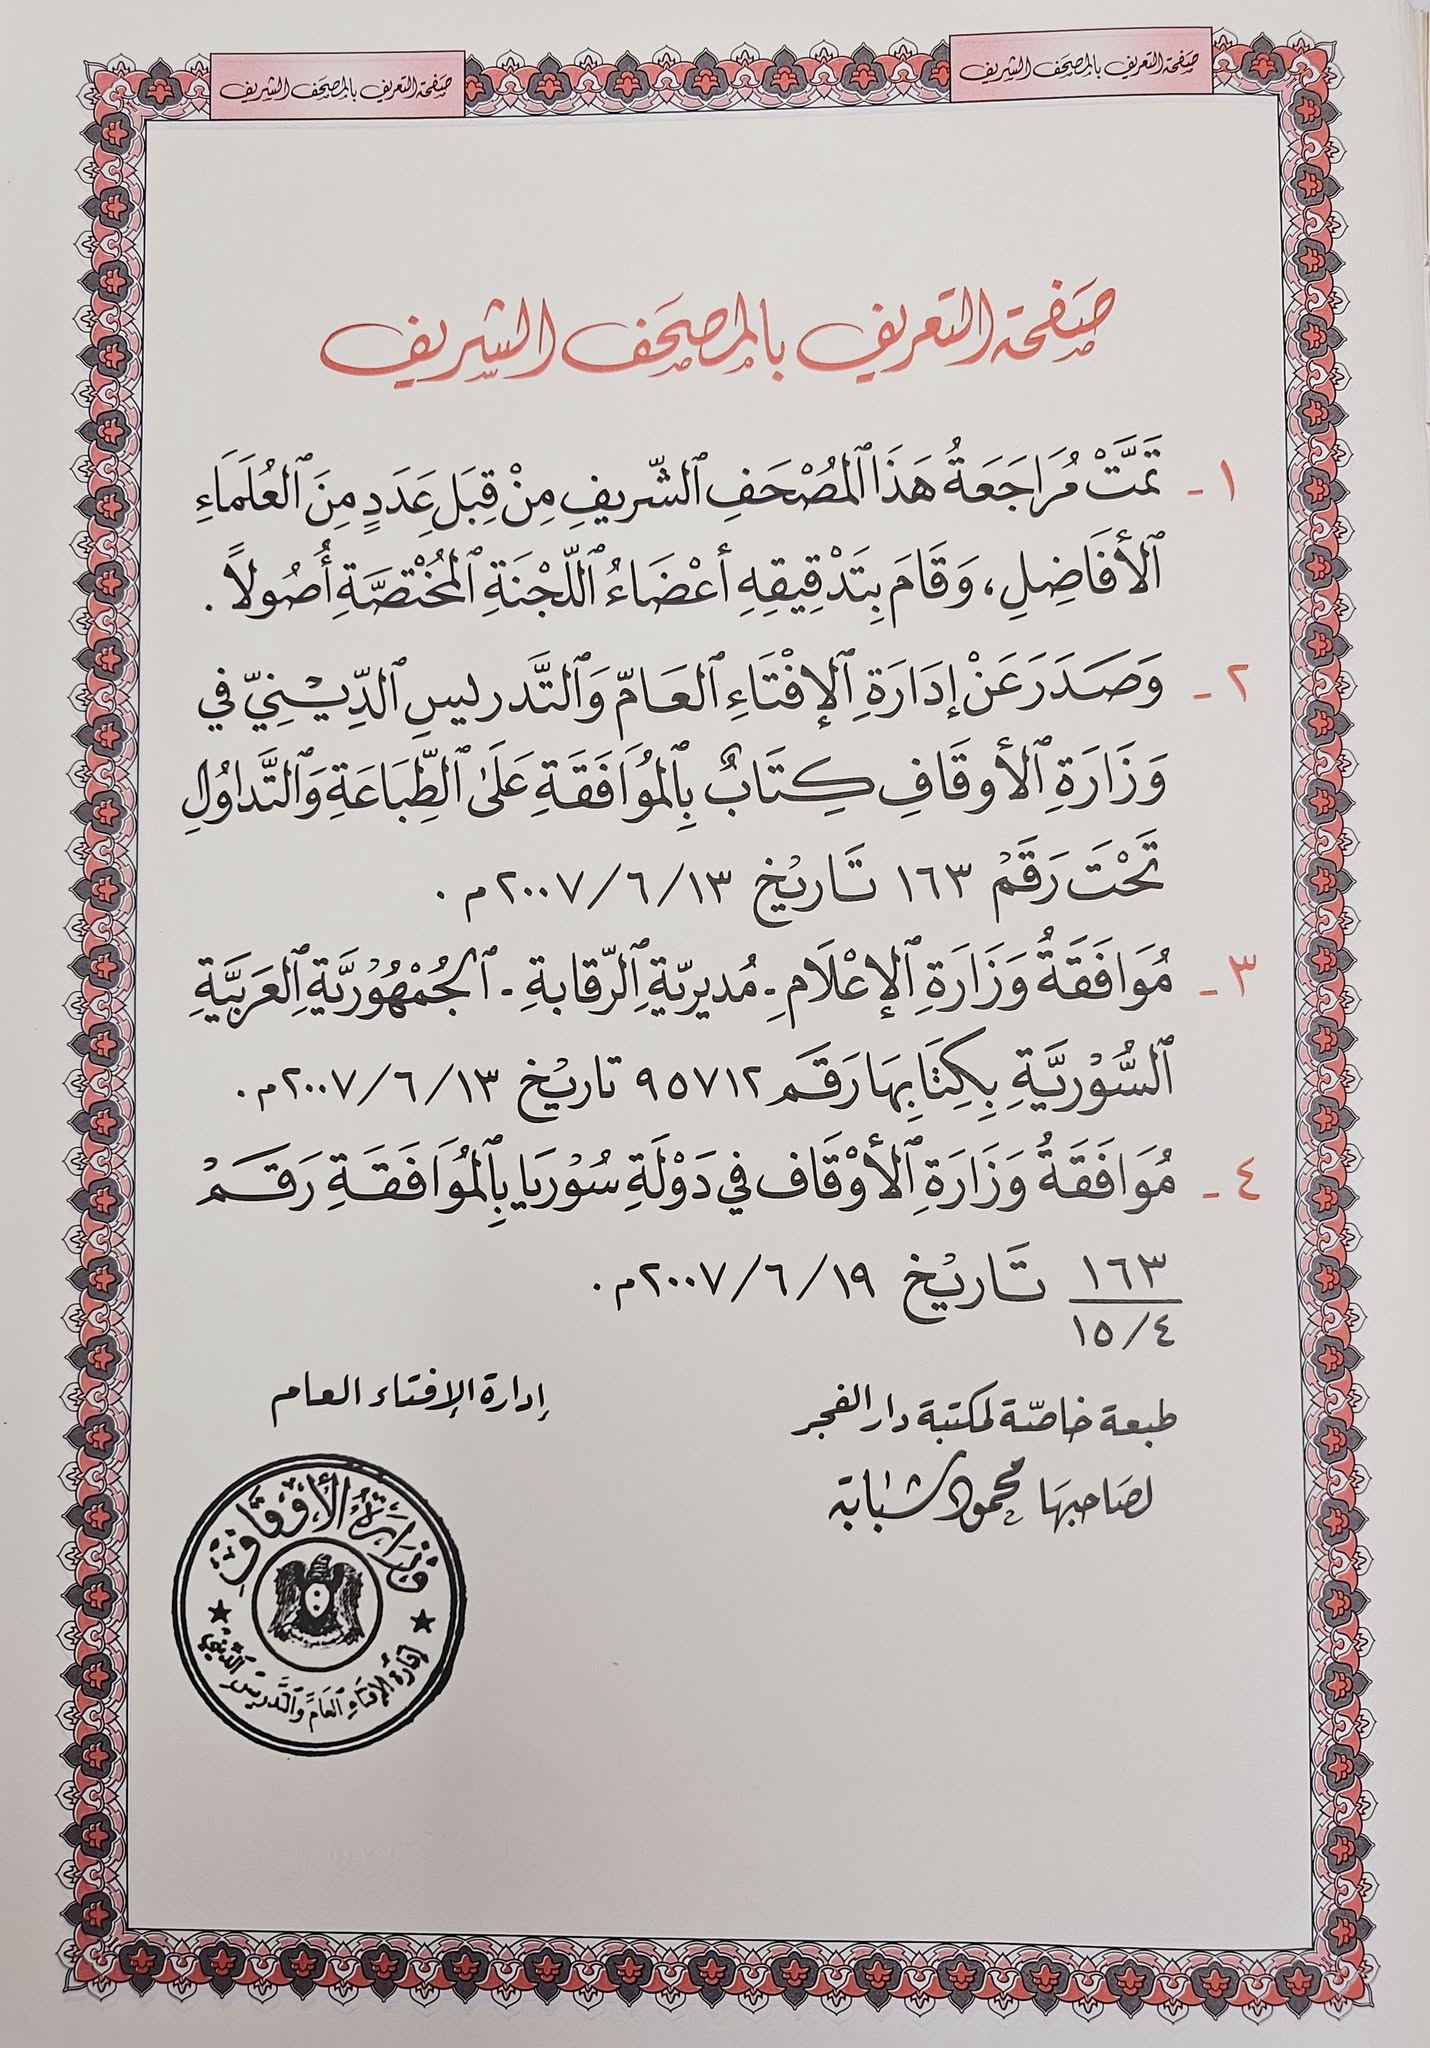 صفحة التعريف بالمصحف الشريف
صفحة التعريف بالمصحف الشريف
صَفحة التعريف بالمصحَف الشريف
١ - تَمَّتْ مُرَاجَعَةُ هَذَا ٱلْمُصْحَفِ ٱلشّريفِ مِنْ قِبَلِ عَدَدٍ مِنَ ٱلْعُلَمَاءِ
ٱلأفَاضِلِ، وَقَامَ بِتَدْقِيقِهِ أعْضَاءُ ٱللّجْنَةِ ٱلْمُخْتصَّةِ أُصُولاً .
٢ - وَصَدَرَ عَنْ إدَارَةِ ٱلإفْتَاءِ ٱلعَامّ وَٱلتَّدريسِ ٱلدِّيْنِيّ في
وَزَارَةِ ٱلأوقَافِ كِتَابٌ بِٱلمُوَافَقَةِ عَلَىٰ ٱلطِّبَاعَةِ وَٱلتَّداوُلِ
تَحْتَ رَقَمْ ١٦٣ تَاريْخ ٢٠٠٧/٦/١٣م .
٣ - مُوَافَقَةُ وَزَارَةِ ٱلإعْلَامِ - مُديريّةِ ٱلرّقابةِ - ٱلجُمْهُوْريَّةِ ٱلعَرَبيَّةِ
ٱلسُّوْريَّةِ بِكِتَابِهَا رَقَم ٩٥٧١٢ تاريْخ ٢٠٠٧/٦/١٣م .
٤ - مُوَافَقَةُ وَزَارَةِ ٱلأوْقَاف في دَوْلَةِ سُوْريَا بِٱلمُوَافَقَةِ رَقَمْ
١٦٣ تَاريْخ ٢٠٠٧/٦/١٩م .
١٥/٤
إدارة الإفتاء العام
طبعة خاصّة لمكتبة دار الفجر
لصَاحبهَا محمود شبابة
وزارة الأوقاف
إدارة الإفتاء العام والتدريس الديني